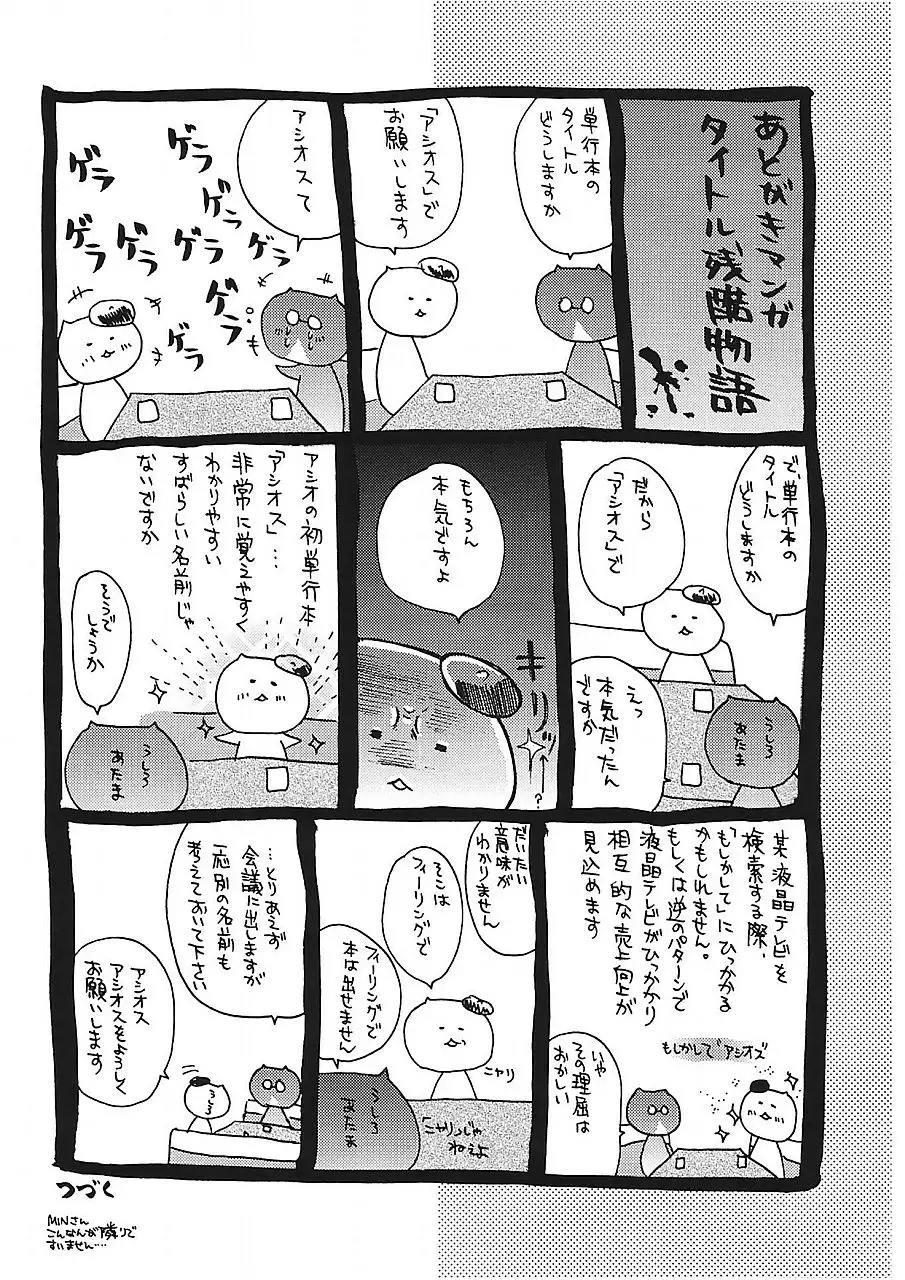 あとがきマンガ
タイトル残酷物語
単行本の
タイトル
どうしますか
「アシオス」で
お願いします
アシオスて
ゲラ
ゲラ
ゲラ
ゲラ
ゲラ
ゲラ
ゲラ
ゲラ
で、単行本の
タイトル
どうしますか
だから
「アシオス」で
えっ
本気だったん
ですか
うしろ
あたま
もちろん
本気ですよ
キリッ
?
アシオの初単行本
「アシオス」…
非常に覚えやすく
わかりやすい
すばらしい名前じゃ
ないですか
そうで
しょうか
うしろ
あたま
某液晶テレビを
検索する際、
「もしかして」にひっかかる
かもしれません。
もしくは逆のパターンで
液晶テレビがひっかかり
相互的な売上向上が
見込めます
もしかして アシオズ
いや
その理屈は
おかしい
だいたい
意味が
わかりません
そこは
フィーリングで
フィーリングで
本は出せません
ニヤリ
「ニヤリ」じゃ
ねぇよ
うしろ
あたま
…とりあえず
会議に出しますが
一応別の名前も
考えておいて下さい
アシオス
アシオスをよろしく
お願いします
うしろ
つづく
MINさん
こんなんが隣りで
すいません…